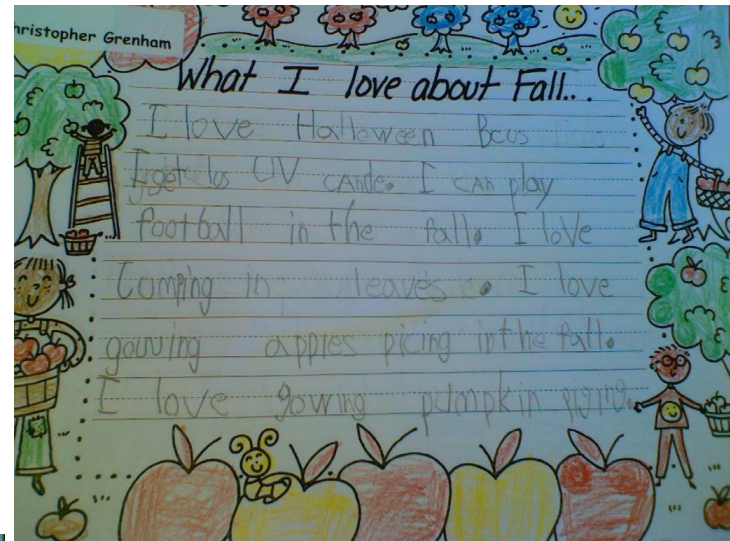 hristopher Grenham
What I love about Fall...
I love Halloween Bcus
I get los UV cAnde. I cAn play
football in the fall. I love
Comping in leaves. I love
gouving apples picing in the fall.
I love gowing pumpkin piging.